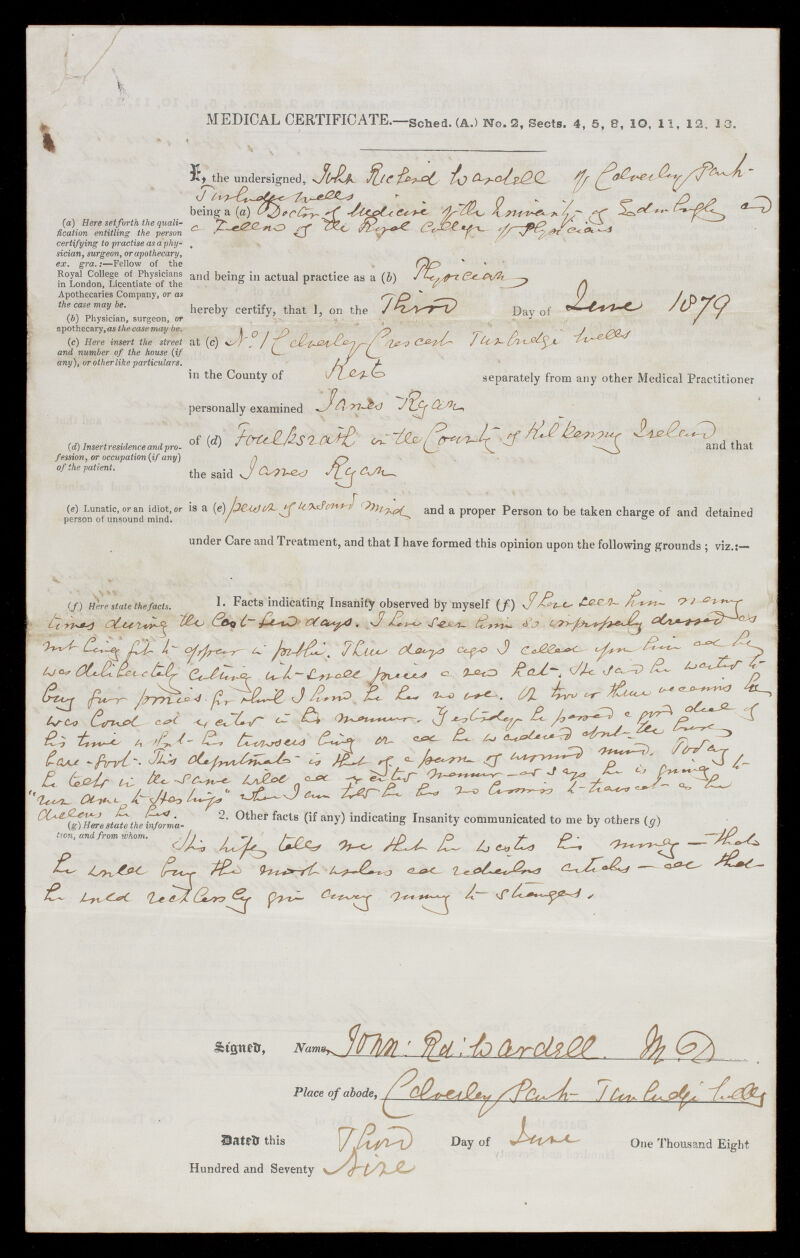 MEDICAL CERTIFICATE.—Sched. (A.) No. 2, Sects. 4, 5, 8, 10, 11, 12, 13.
I, the undersigned, John Richard Wardell of Calverley Park
Tunbridge Wells
being a (a) Doctor of Medicine of the University of Edinburgh and
a Fellow of the Royal College of Physicians
(a) Here set forth the quali-
fication entitling the person
certifying to practise as a phy-
sician, surgeon, or apothecary,
ex. gra.:—Fellow of the
Royal College of Physicians
in London, Licentiate of the
Apothecaries Company, or as
the case may be.
and being in actual practice as a (b) Physician
(b) Physician, surgeon, or
apothecary, as the case may be.
hereby certify, that I, on the Third Day of June 1879
(c) Here insert the street
and number of the house (if
any), or other like particulars.
at (c) No. 1 Calverley Crescent Tunbridge Wells
in the County of Kent separately from any other Medical Practitioner
personally examined James Ryan
(d) Insert residence and pro-
fession, or occupation (if any)
of the patient.
of (d) Foulksrath in the County of Kilkenny Ireland and that
the said James Ryan
(e) Lunatic, or an idiot, or
person of unsound mind.
is a (e) person of unsound mind and a proper Person to be taken charge of and detained
under Care and Treatment, and that I have formed this opinion upon the following grounds; viz.:—
(f) Here state the facts.
1. Facts indicating Insanity observed by myself (f) I have seen him many
times during the last few days. I have seen him so improperly dressed as
not being fit to appear in public. Three days ago I called upon him and he
was deliberately cutting into small pieces a new hat. He said he wanted to
buy four ponies for which I know he has no use. On two or three occasions he
was loud and excited in his manner. Yesterday he passed a good deal of
his time without his trowsers being on and he wandered about the house
bare-foot. This deportment is that of a person of unsound mind. Today
he talks in the same wild and excited manner and says he is going to
"run down to Hastings" when I am told he has no business to transact as he
declares he has.
2. Other facts (if any) indicating Insanity communicated to me by others (g)
(g) Here state the informa-
tion, and from whom.
His wife tells me that he wastes his money — that
he would buy the most useless and rediculous articles — and that
he would recklessly give away money to strangers.
Signed, Name, John: Rd: Wardell. M.D.
Place of abode, Calverley Park Tunbridge Wells
Dated this Third Day of June One Thousand Eight
Hundred and Seventy Nine